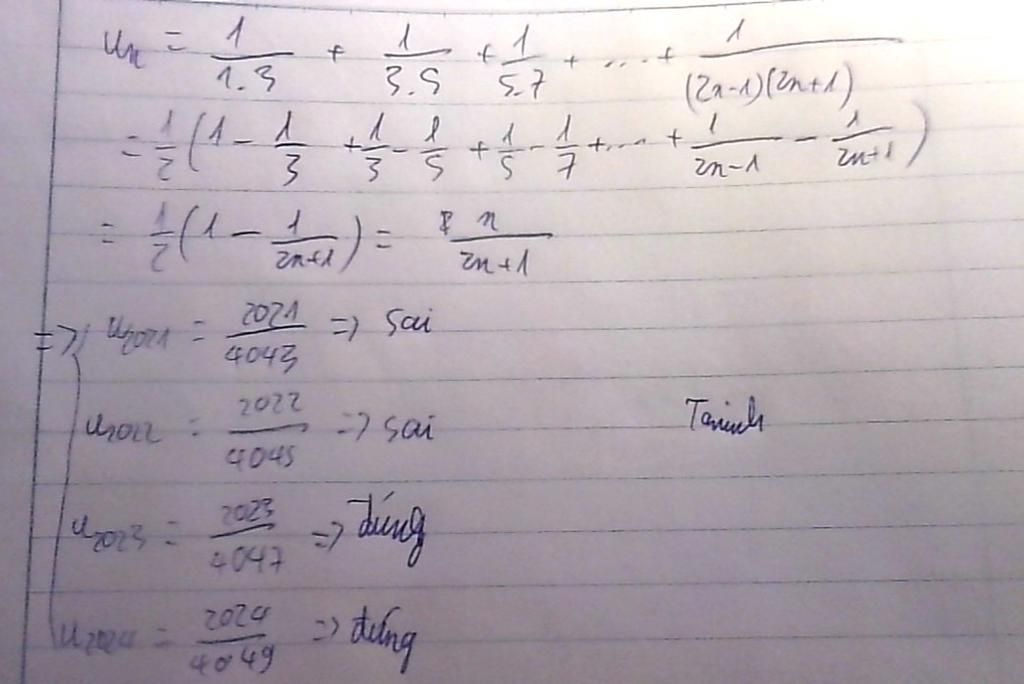 uₙ = 1/1.3 + 1/3.5 + 1/5.7 + .... + 1/(2n-1)(2n+1)
= 1/2 (1 - 1/3 + 1/3 - 1/5 + 1/5 - 1/7 + .... + 1/2n-1 - 1/2n+1)
= 1/2 (1 - 1/2n+1) = n/2n+1
=> u₂₀₂₁ = 2021/4043 => sai
u₂₀₂₂ = 2022/4045 => sai
Taminh
u₂₀₂₃ = 2023/4047 => đúng
u₂₀₂₄ = 2024/4049 => đúng